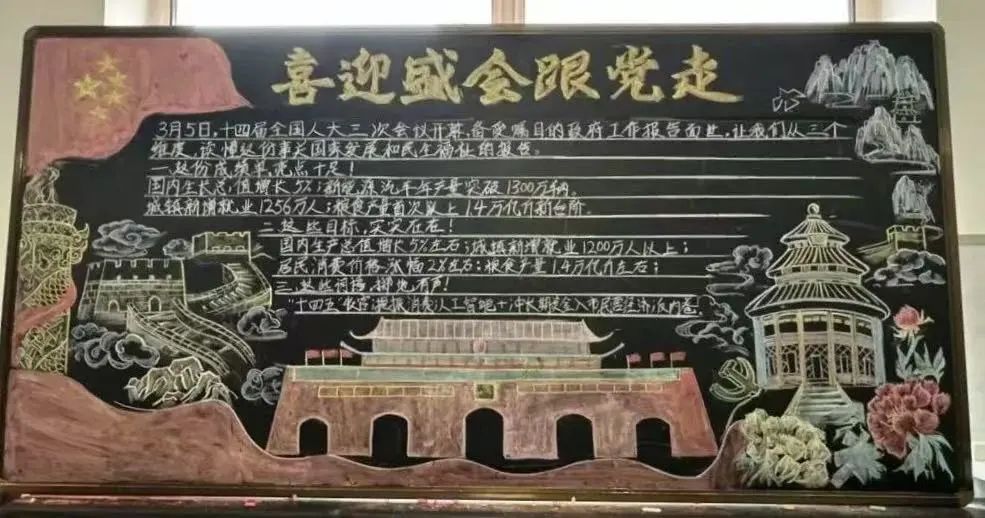 喜迎盛会跟党走
3月5日,十四届全国人大三次会议开幕,备受瞩目的政府工作报告面世,让我们从三个
维度,读懂这份事关国家发展和民生福祉的报告。
一.这份成绩单,亮点十足!
国内生产总值增长5%;新能源汽车年产量突破1300万辆。
城镇新增就业1256万人;粮食产量首次跃上1.4万亿斤新台阶。
二.这些目标,实实在在!
国内生产总值增长5%左右;城镇新增就业1200万人以上;
居民消费价格涨幅2%左右;粮食产量1.4万亿斤左右;
三.这些词语,掷地有声!
"十四五"收官提振消费人工智能+